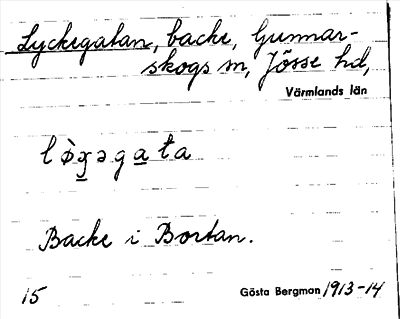 Lyckegatan, backe, Gunnar-
skogs sn, Jösse hd,
Värmlands län
lø̀ʒəgata
Backe i Bortan.
15 Gösta Bergman 1913-14